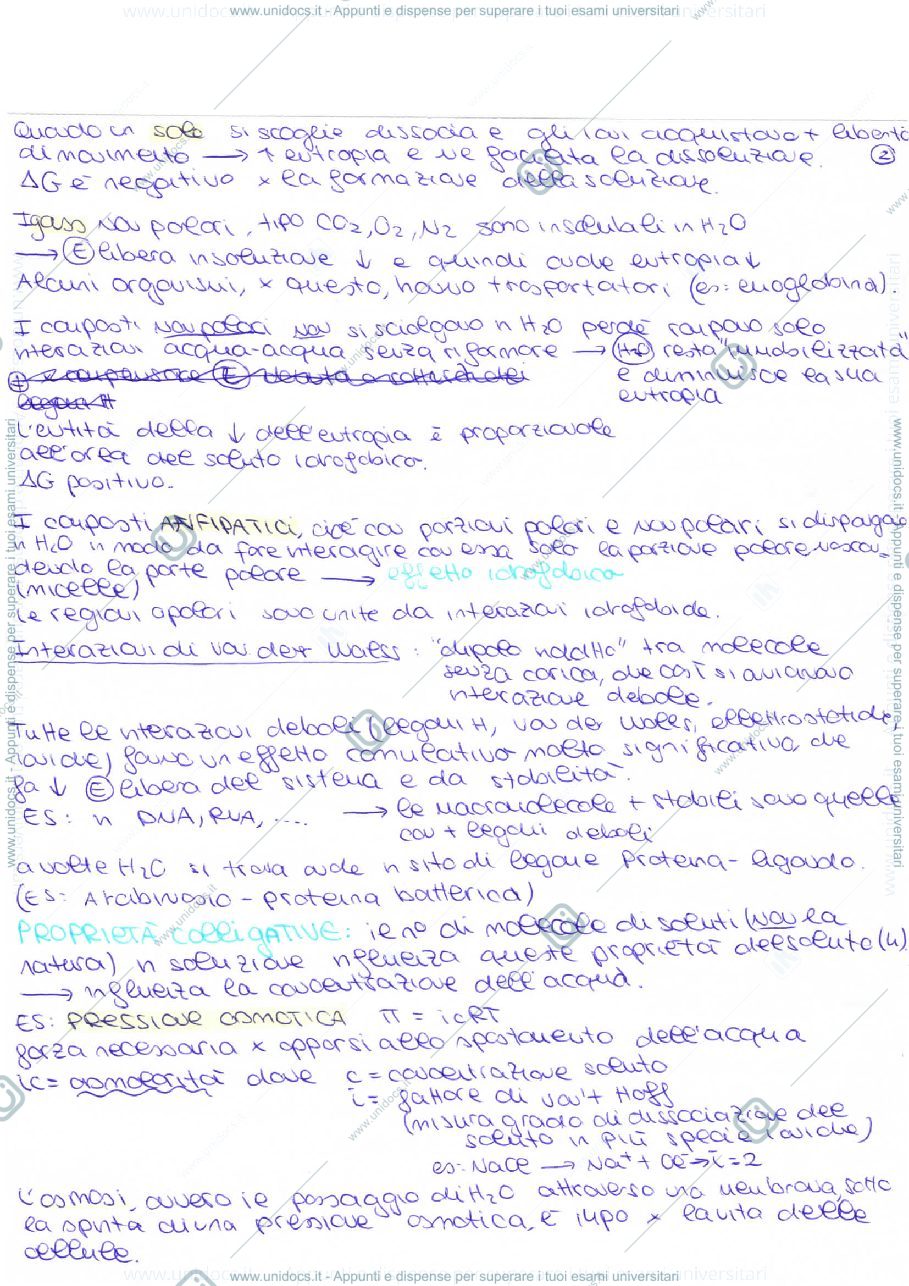 www.unidocs.it - Appunti e dispense per superare i tuoi esami universitari
Quando un sale si scioglie dissocia e gli ioni acquistano + libertà
di movimento → ↑ entropia e ne facilita la dissoluzione. ②
ΔG è negativo x la formazione della soluzione.
I gass non polari, tipo CO2, O2, N2 sono insolubili in H2O
→ Ⓔ libera in soluzione ↓ e quindi anche entropia ↓
Alcuni organismi, x questo, hanno trasportatori (es: emoglobina).
I composti non polari non si sciolgono in H2O perché rompono solo
interazioni acqua-acqua senza riformare → H2O resta "immobilizzata"
e diminuisce la sua
entropia
L'entità della ↓ dell'entropia è proporzionale
all'area del soluto idrofobico.
ΔG positivo.
I composti ANFIPATICI, cioè con porzioni polari e non polari si dispongono
in H2O in modo da fare interagire con essa solo la porzione polare nascon_
dendo la parte polare → effetto idrofobico
(micelle)
le regioni apolari sono unite da interazioni idrofobiche.
Interazioni di van der Waals: "dipolo indotto" tra molecole
senza carica, che così si avvicinano
interazione debole.
Tutte le interazioni deboli (legami H, van der Waals, elettrostatiche,
ioniche) fanno un effetto cumulativo molto significativo che
fa ↓ Ⓔ libera del sistema e da stabilità.
ES: in DNA, RNA, .... → le macromolecole + stabili sono quelle
con + legami deboli
a volte H2O si trova anche in sito di legame Proteina-ligando.
(ES: Arabinosio - proteina batterica)
PROPRIETÀ COLLIGATIVE: il n° di molecole di soluti (non la
natura) in soluzione influenza queste proprietà del soluto (4)
→ influenza la concentrazione dell'acqua.
ES: PRESSIONE OSMOTICA π = icRT
forza necessaria x opporsi allo spostamento dell'acqua
ic = osmolarità dove c = concentrazione soluto
i = fattore di van't Hoff
(misura grado di dissociazione del
soluto in più specie ioniche)
es: NaCl → Na⁺ + Cl⁻ → i = 2
L'osmosi, ovvero il passaggio di H2O attraverso una membrana, sotto
la spinta di una pressione osmotica, è impo x la vita delle
cellule.
www.unidocs.it - Appunti e dispense per superare i tuoi esami universitari